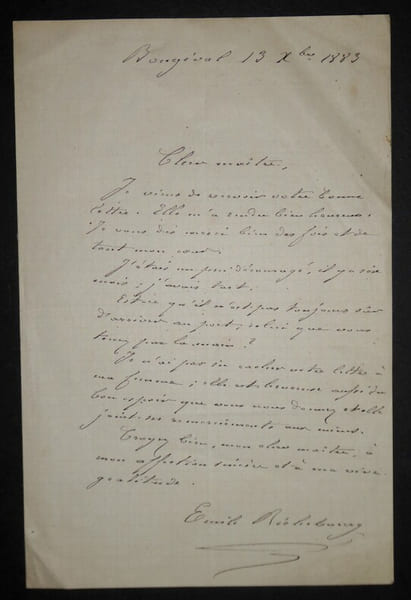 Bougival 13 Xbre 1883
Cher maître,
Je viens de recevoir votre bonne
lettre. Elle m'a rendu bien heureux.
Je vous dis merci bien des fois et de
tout mon cœur.
J'étais un peu découragé, il y a six
mois ; j'avais tort.
Est-ce qu'il n'est pas toujours sûr
d'arriver au port, celui que vous
tenez par la main ?
Je n'ai pas su cacher votre lettre à
ma femme ; elle est heureuse aussi du
bon espoir que vous nous donnez et elle
joint ses remerciements aux miens.
Croyez bien, mon cher maître, à
mon affection sincère et à ma vive
gratitude.
Emile Richebourg